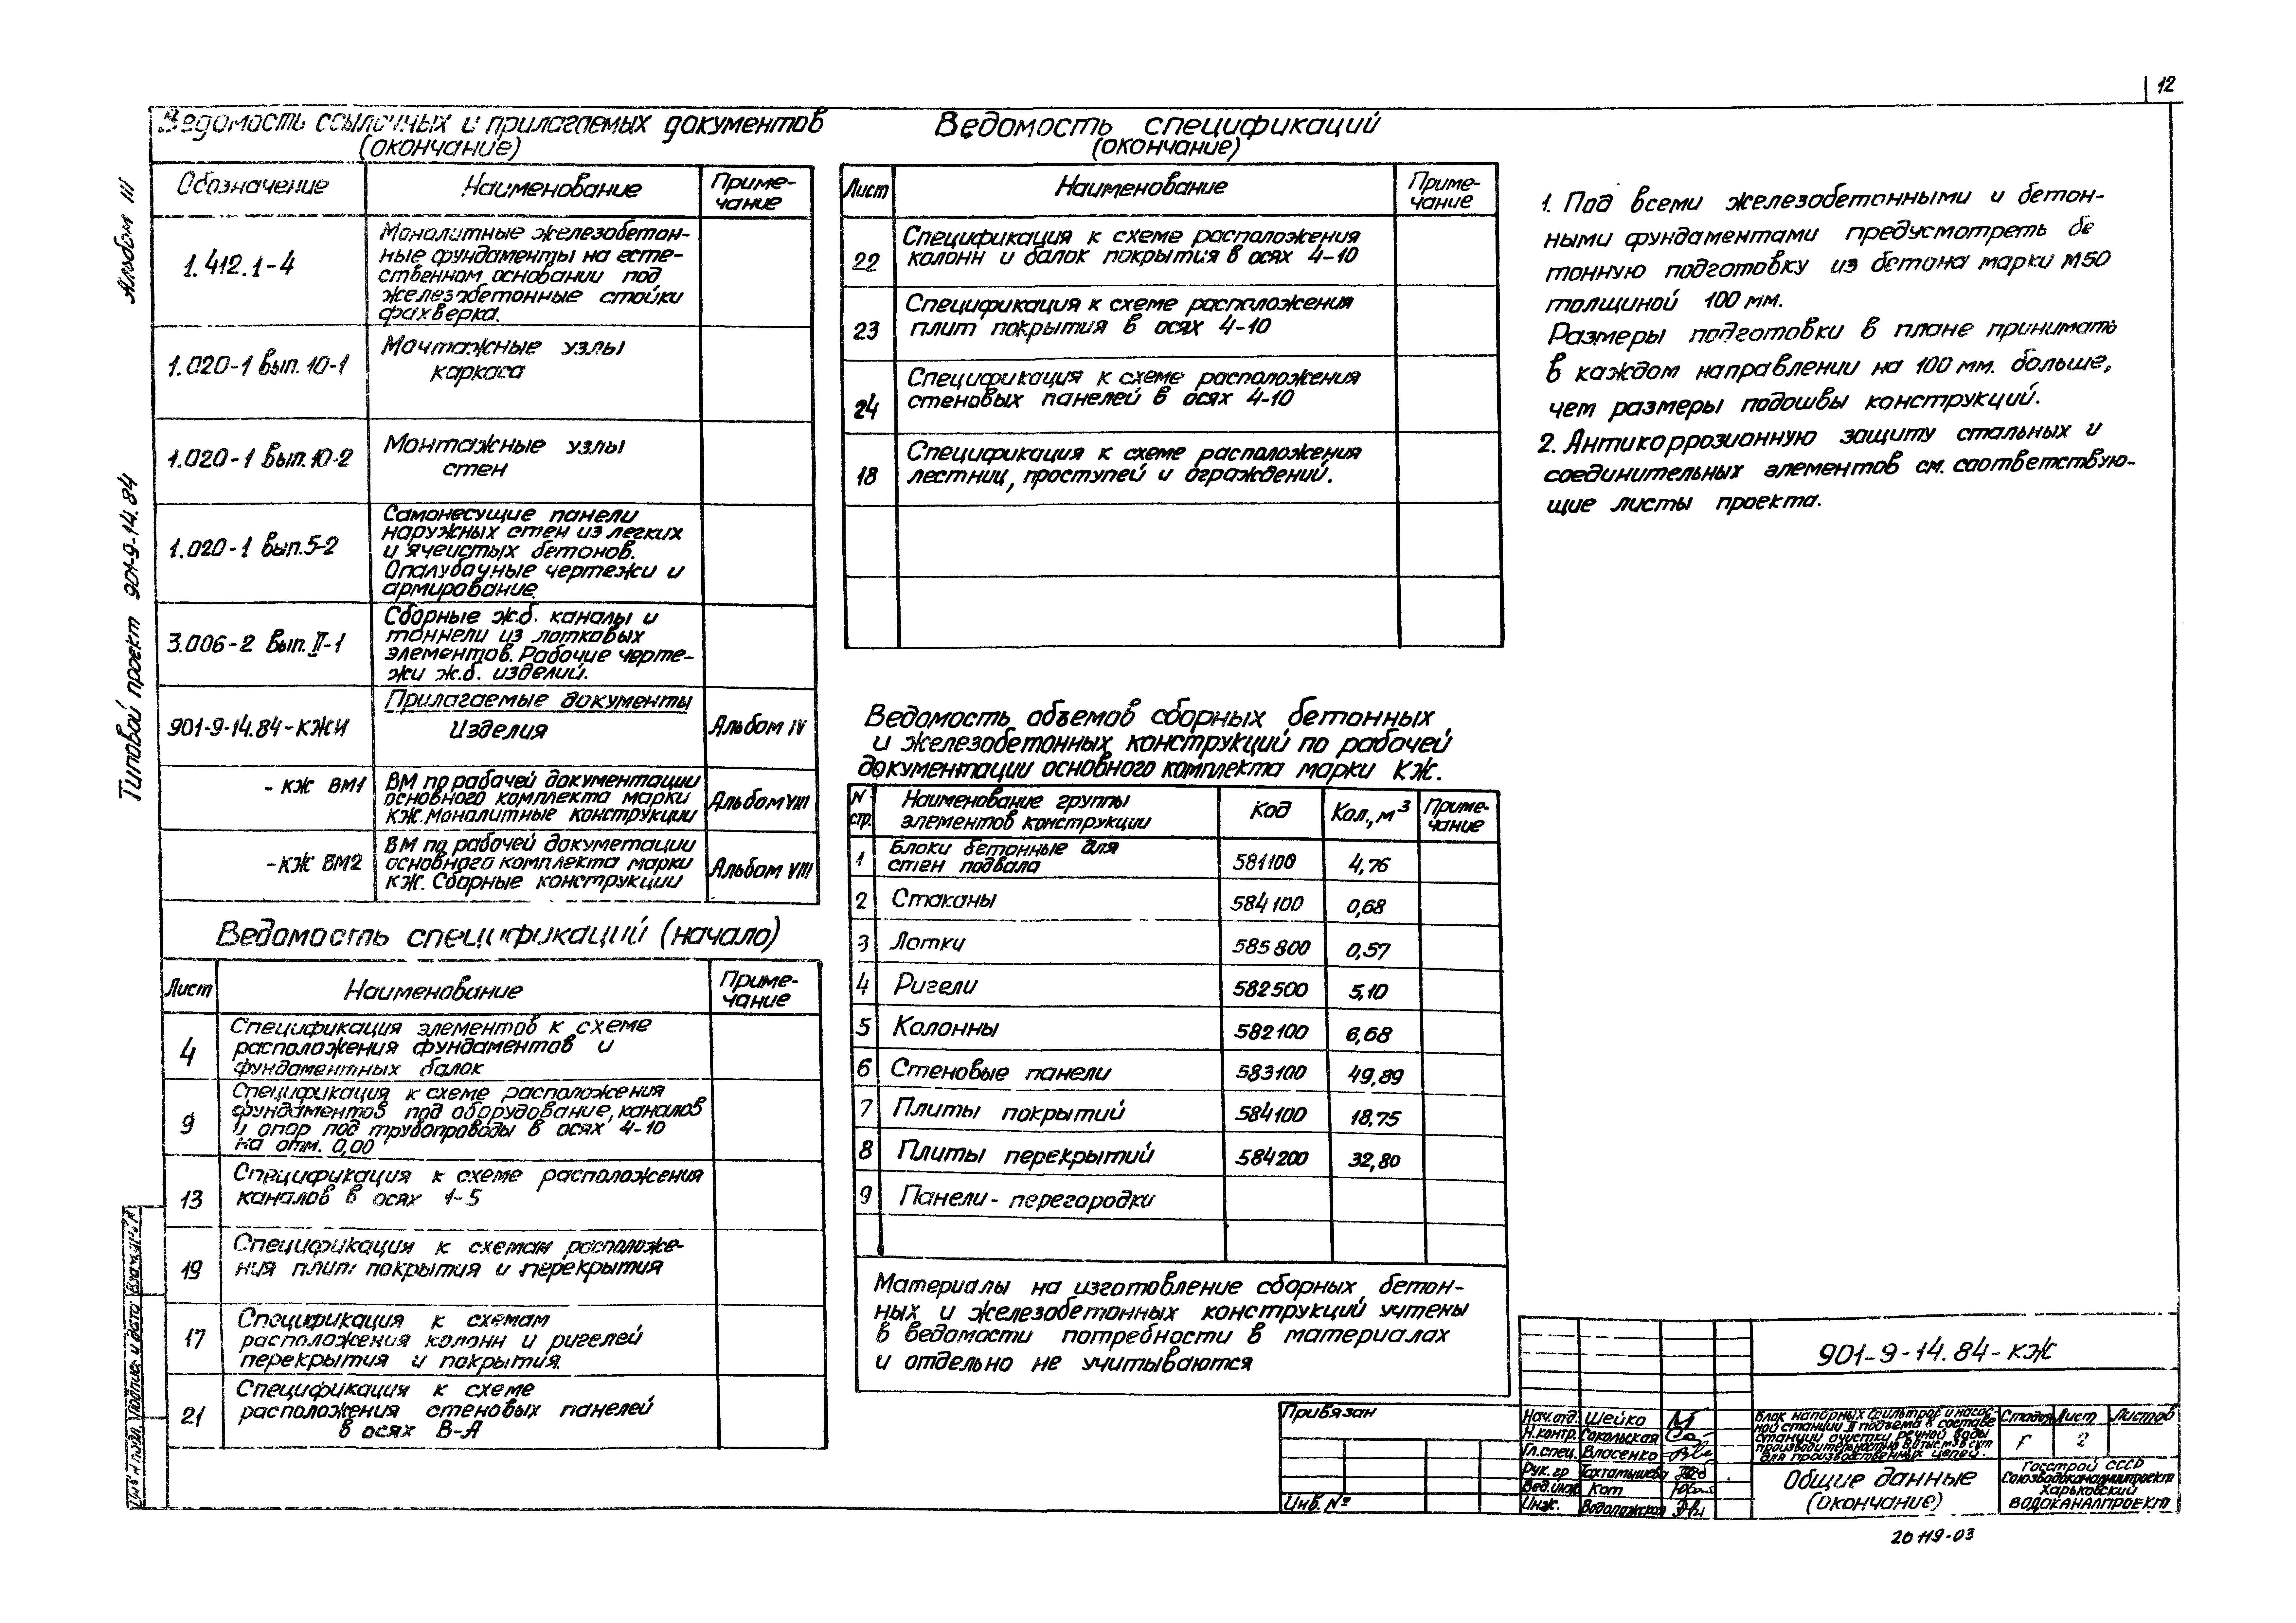 12
Альбом III
Типовой проект 901-9-14.84
Ведомость ссылочных и прилагаемых документов
(окончание)
Обозначение
Наименование
Приме-
чание
1.412.1-4
Монолитные железобетон-
ные фундаменты на есте-
ственном основании под
железобетонные стойки
фахверка.
1.020-1 вып. 10-1
Монтажные узлы
каркаса
1.020-1 вып. 10-2
Монтажные узлы
стен
1.020-1 вып. 5-2
Самонесущие панели
наружных стен из легких
и ячеистых бетонов.
Опалубочные чертежи и
армирование.
3.006-2 вып. II-1
Сборные ж.б. каналы и
тоннели из лотковых
элементов. Рабочие черте-
жи ж.б. изделий.
Прилагаемые документы
901-9-14.84-КЖИ
Изделия
Альбом IV
- КЖ ВМ1
ВМ по рабочей документации
основного комплекта марки
КЖ. Монолитные конструкции
Альбом VIII
-КЖ ВМ2
ВМ по рабочей докуметации
основного комплекта марки
КЖ. Сборные конструкции
Альбом VIII
Ведомость спецификаций (начало)
Лист
Наименование
Приме-
чание
4
Спецификация элементов к схеме
расположения фундаментов и
фундаментных балок
9
Спецификация к схеме расположения
фундаментов под оборудование, каналов
и опор под трубопроводы в осях 4-10
на отм. 0,00
13
Спецификация к схеме расположения
каналов в осях 1-5
19
Спецификация к схемам расположе-
ния плит покрытия и перекрытия
17
Спецификация к схемам
расположения колонн и ригелей
перекрытия и покрытия.
21
Спецификация к схеме
расположения стеновых панелей
в осях В-А
Ведомость спецификаций
(окончание)
Лист
Наименование
Приме-
чание
22
Спецификация к схеме расположения
колонн и балок покрытия в осях 4-10
23
Спецификация к схеме расположения
плит покрытия в осях 4-10
24
Спецификация к схеме расположения
стеновых панелей в осях 4-10
18
Спецификация к схеме расположения
лестниц, проступей и ограждений.
Ведомость объемов сборных бетонных
и железобетонных конструкций по рабочей
документации основного комплекта марки КЖ.
N
стр.
Наименование группы
элементов конструкции
Код
Кол., м³
Приме-
чание
1
Блоки бетонные для
стен подвала
581100
4,76
2
Стаканы
584100
0,68
3
Лотки
585800
0,57
4
Ригели
582500
5,10
5
Колонны
582100
6,68
6
Стеновые панели
583100
49,89
7
Плиты покрытий
584100
18,75
8
Плиты перекрытий
584200
32,80
9
Панели- перегородки
Материалы на изготовление сборных бетон-
ных и железобетонных конструкций учтены
в ведомости потребности в материалах
и отдельно не учитываются
1. Под всеми железобетонными и бетон-
ными фундаментами предусмотреть бе
тонную подготовку из бетона марки М50
толщиной 100 мм.
Размеры подготовки в плане принимать
в каждом направлении на 100 мм. больше,
чем размеры подошвы конструкций.
2. Антикоррозионную защиту стальных и
соединительных элементов см. соответствую-
щие листы проекта.
Привязан
Инв. №
901-9-14.84-КЖ
Нач. отд. Шейко
Н.контр. Сокольская
Гл.спец. Власенко
Рук. гр Тахтамышева
Вед.инж Кот
Инж. Водолажская
Блок напорных фильтров и насос-
ной станции II подъема в составе
станции очистки речной воды
производительностью 8,0 тыс. м3 в сут
для производственных целей.
Стадия
Лист
Листов
2
Общие данные
(окончание)
Госстрой СССР
Союзводоканалниипроект
Харьковский
ВОДОКАНАЛПРОЕКТ
Инв N подл.
Подпись и дата
20119-03